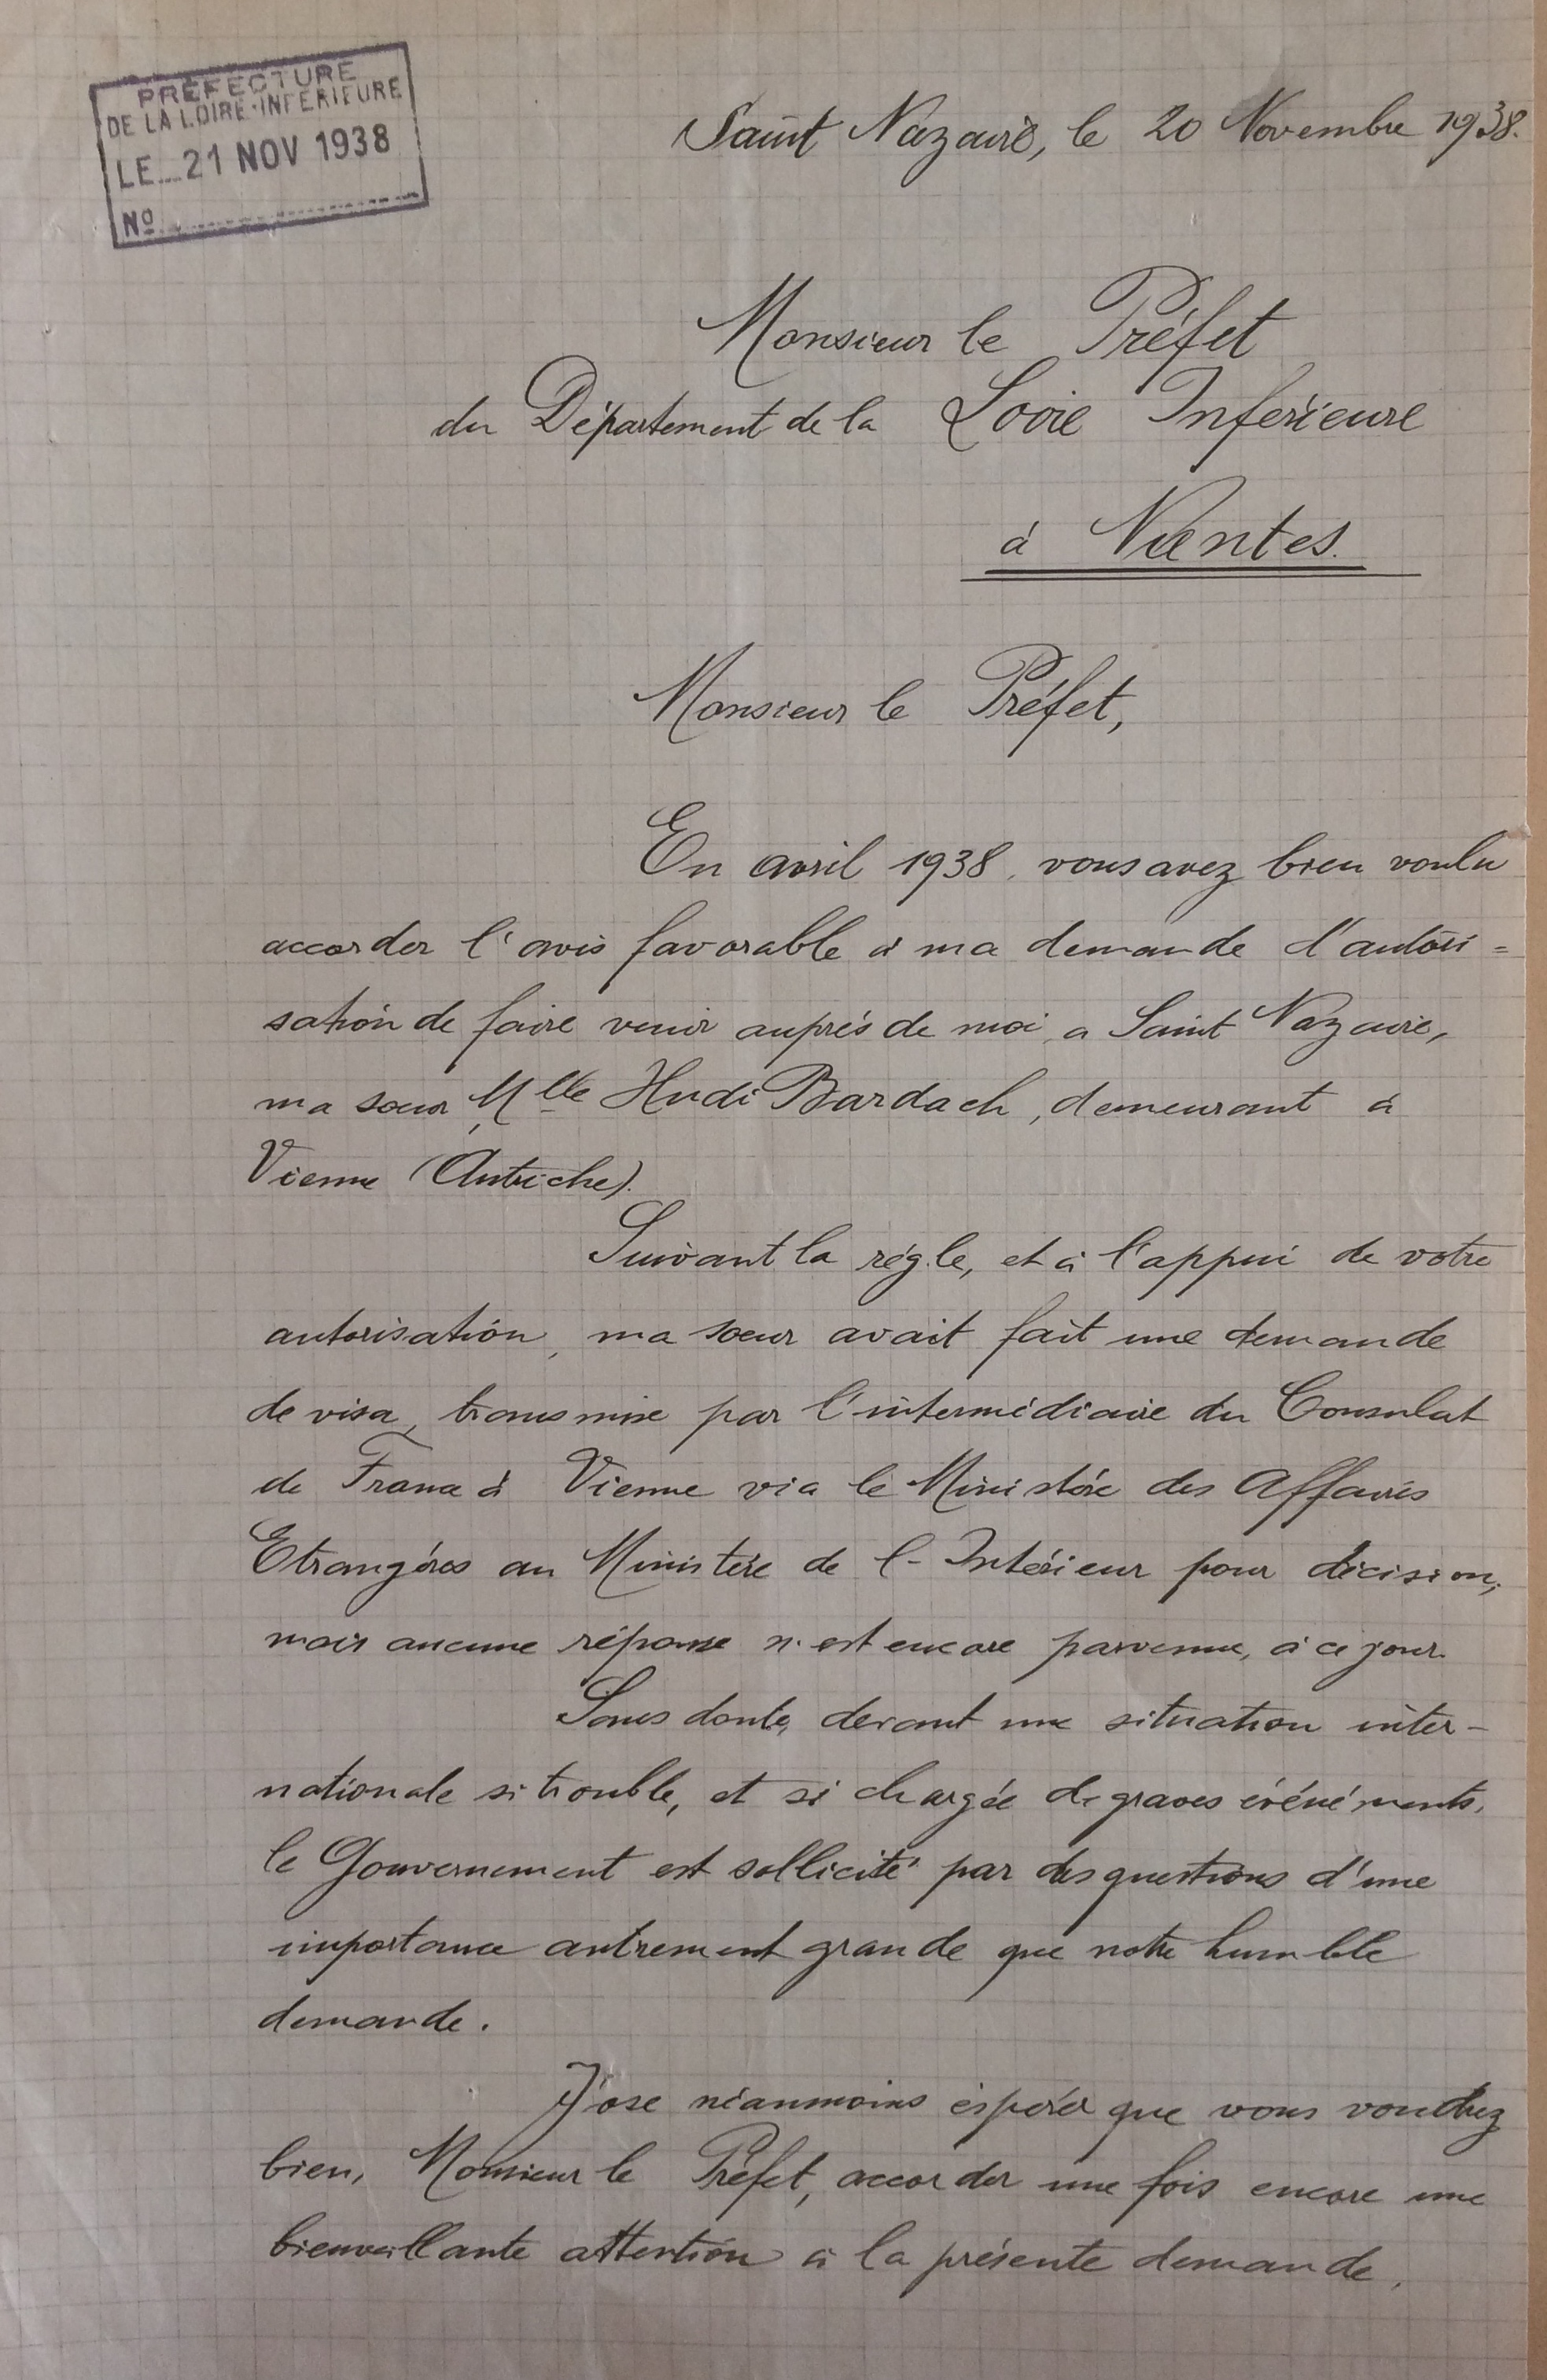 PRÉFECTURE
DE LA LOIRE-INFÉRIEURE
LE 21 NOV 1938
Nº
Saint Nazaire, le 20 Novembre 1938.
Monsieur le Préfet
du Département de la Loire Inférieure
à Nantes.
Monsieur le Préfet,
En avril 1938, vous avez bien voulu
accorder l'avis favorable à ma demande d'autori=
sation de faire venir auprés de moi, a Saint Nazaire,
ma soeur, Mlle Hudi Bardach, demeurant à
Vienne (Autriche).
Suivant la régle, et à l'appui de votre
autorisation, ma soeur avait fait une demande
de visa, transmise par l'intermédiaire du Consulat
de France à Vienne via le Ministére des Affaires
Etrangéres au Ministére de l'Intérieur pour décision,
mais aucune réponse n'est encore parvenue, à ce jour.
Sans doute, devant une situation inter-
nationale si trouble, et si chargée de graves événéments,
le Gouvernement est sollicité par des questions d'une
importance autrement grande que notre humble
demande.
J'ose néanmoins éspérer que vous voudrez
bien, Monsieur le Préfet, accorder une fois encore une
bienveillante attention à la présente demande,